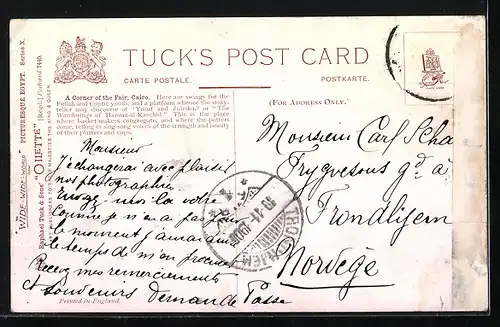 TUCK'S POST CARD
CARTE POSTALE.
POSTKARTE.
(FOR ADDRESS ONLY.)
"WIDE-WIDE-WORLD" "PICTURESQUE EGYPT. Series X.
Raphael Tuck & Sons' "OILETTE" [Regd.] Postcard 7149.
A Corner of the Fair, Cairo. Here are swings for the
Fellah and Coptic youth, and a platform whence the story-
teller may discourse of "Yusuf and Zuleika," or "The
Wanderings of Haroun-al-Raschid." This is the place
where basket-makers congregate, and where the potters
come, telling in sing-song voices of the strength and beauty
of their platters and cups.
Monsieur
J'échangerai avec plaisir
nos photographies
Envoyez-moi la vôtre
Comme je n'en a pas pour
le moment j'aurai
le temps de m'en procurer
Recevez mes remerciements
et souvenirs Demande Passe
Printed in England.
Monsieur Carl Scha
Trygvesons gd à
Trondhjem
Norvège
TRONDHJEM